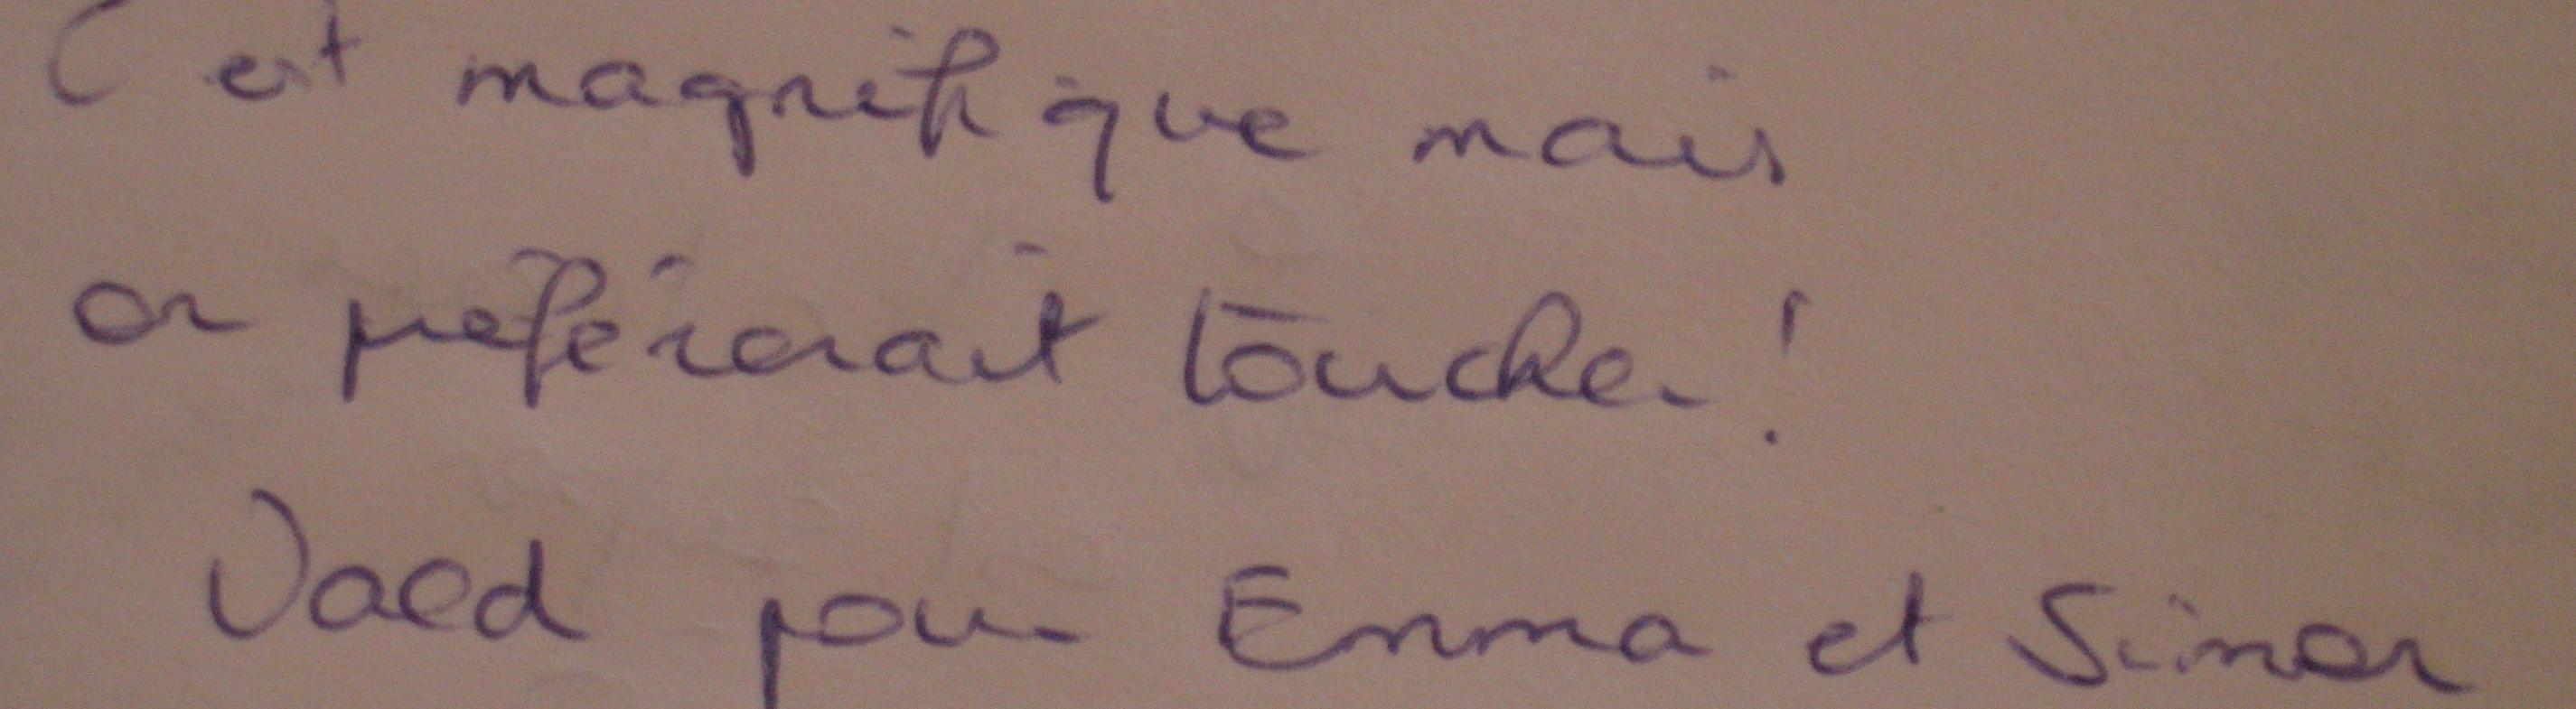 C'est magnifique mais
on préférerait toucher !
Vaed pour Emma et Simon